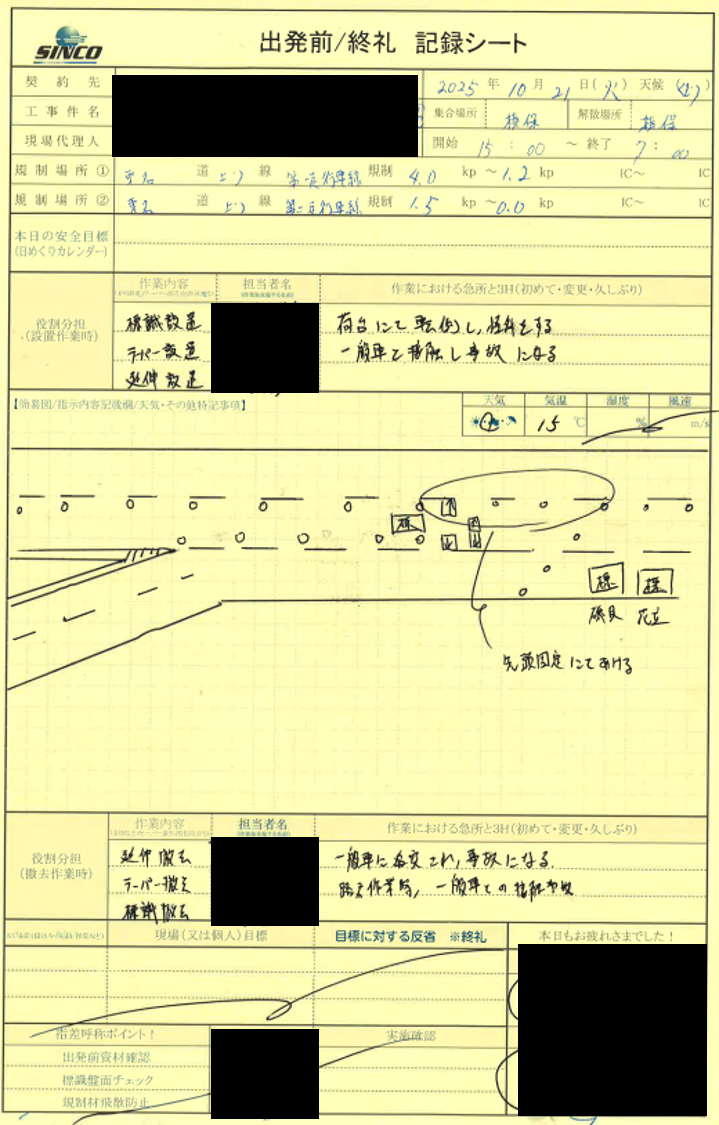 SINCO
出発前/終礼 記録シート
契約先
2025年10月21日(火) 天候
工事件名
集合場所
解散場所
現場代理人
開始 15:00 ～ 終了 7:00
規制場所① 東名 道 上り 線 規制 4.0 kp ～ 1.2 kp IC～ IC
規制場所② 東名 道 上り 線 規制 1.5 kp ～ 0.0 kp IC～ IC
本日の安全目標
(日めくりカレンダー)
役割分担
(設置作業時)
作業内容
担当者名
作業における急所と3H(初めて・変更・久しぶり)
標識設置
荷台にて転倒し、怪我をする
テーパー設置
一般車と接触し事故になる
延伸設置
【簡易図/指示内容記載欄/天気・その他特記事項】
天気 気温 湿度 風速
15 ℃ % m/s
標 標
磯貝 花立
先頭固定にてあける
役割分担
(撤去作業時)
作業内容
担当者名
作業における急所と3H(初めて・変更・久しぶり)
延伸撤去
一般車に
され、事故になる
テーパー撤去
作業時、一般車との接触事故
標識撤去
現場(又は個人)目標
目標に対する反省 ※終礼
本日もお疲れさまでした！
指差呼称ポイント！
実施確認
出発前資材確認
標識盤面チェック
規制材飛散防止